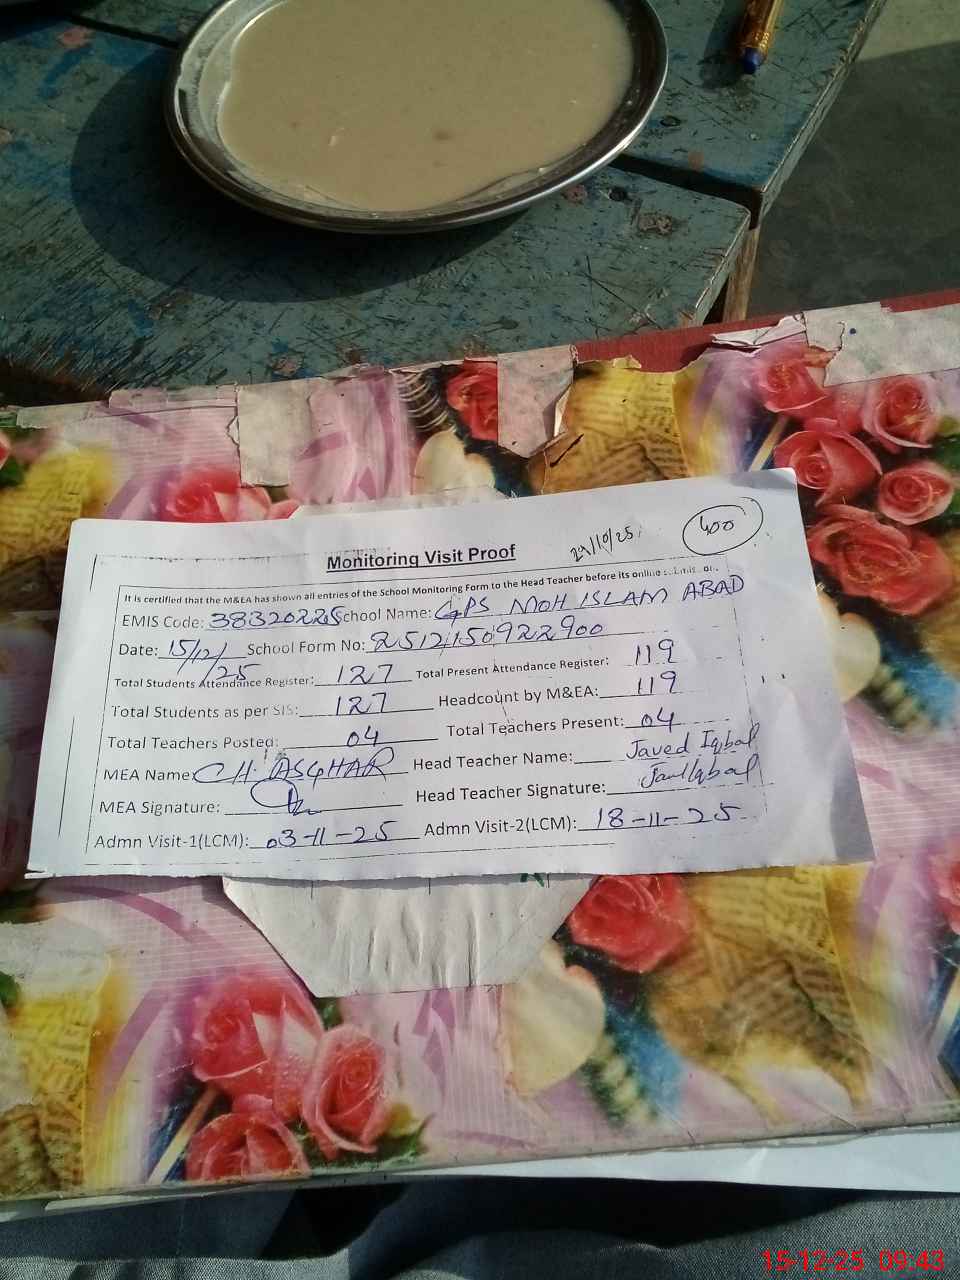 Monitoring Visit Proof
29/10/25
400
It is certified that the M&EA has shown all entries of the School Monitoring Form to the Head Teacher before its online
EMIS Code: 38320225 School Name: GPS MOH ISLAM ABAD
Date: 15/12/25 School Form No: 2512150922900
Total Students Attendance Register: 127 Total Present Attendance Register: 119
Total Students as per SIS: 127 Headcount by M&EA: 119
Total Teachers Posted: 04 Total Teachers Present: 04
MEA Name: CH. ASGHAR Head Teacher Name: Javed Iqbal
MEA Signature: Head Teacher Signature: Javed Iqbal
Admn Visit-1(LCM): 03-11-25 Admn Visit-2(LCM): 18-11-25
15-12-25 09:43